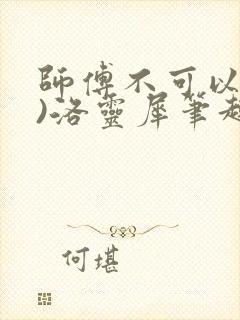 師傅不可以
)洛靈犀筆趣
何堪